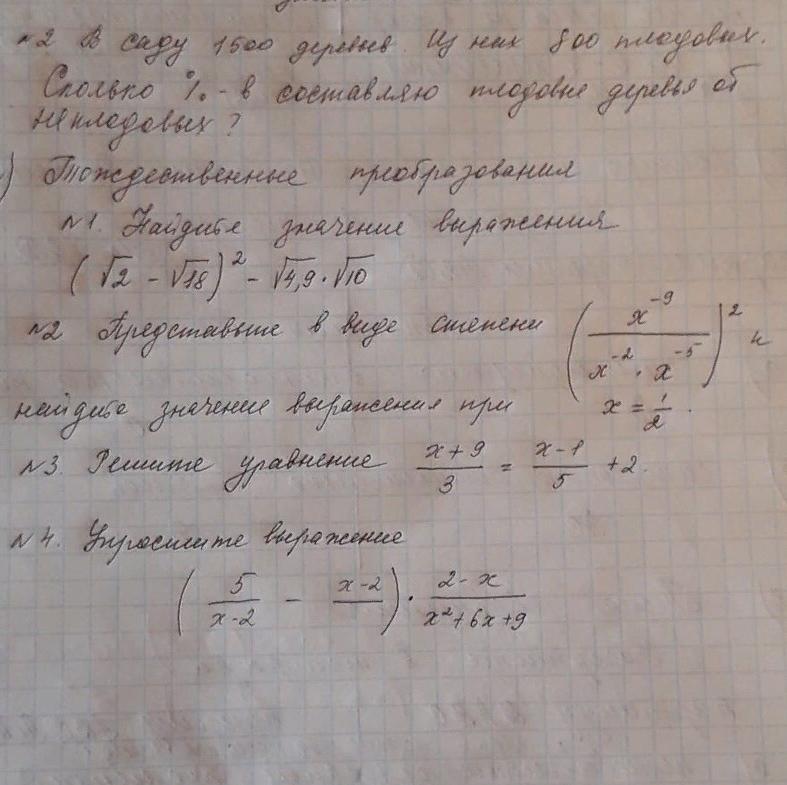 №2 В саду 1500 деревьев. Из них 800 плодовых.
Сколько %-в составляю плодовые деревья от
неплодовых?
) Тождественные преобразования
№1. Найдите значение выражения
(√2 - √18)² - √4,9 · √10
№2 Представьте в виде степени (x⁻⁹ / (x⁻² · x⁻⁵))² и
найдите значение выражения при x = 1/2.
№3. Решите уравнение (x+9)/3 = (x-1)/5 + 2.
№4. Упростите выражение
(5/(x-2) - (x-2)/ ) · (2-x)/(x²+6x+9)